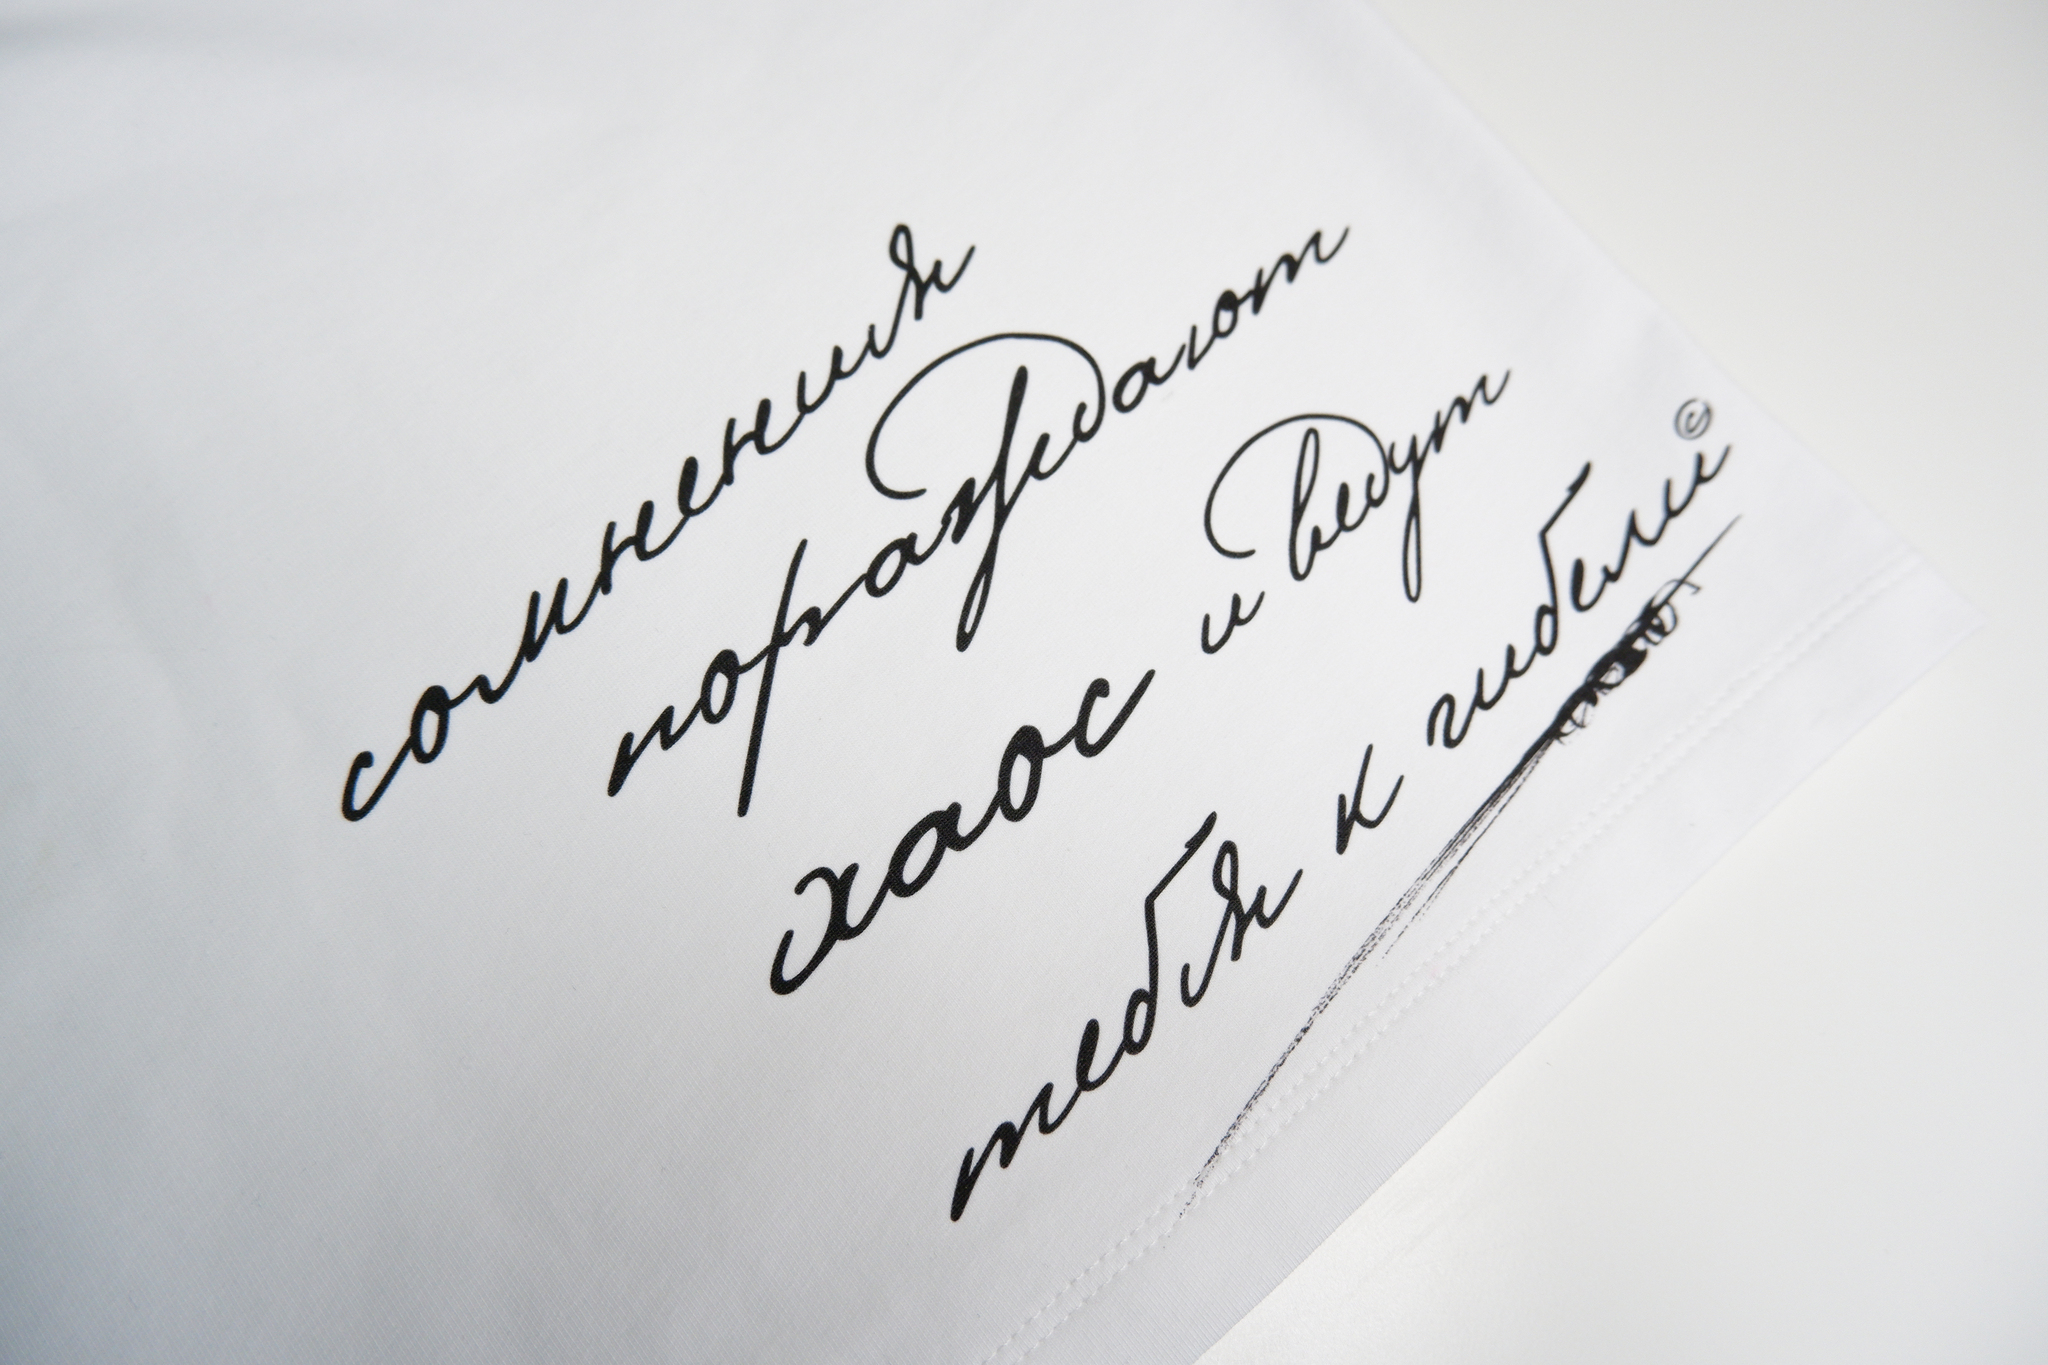 сомнения
пораждают
хаос и ведут
тебя к гибели©